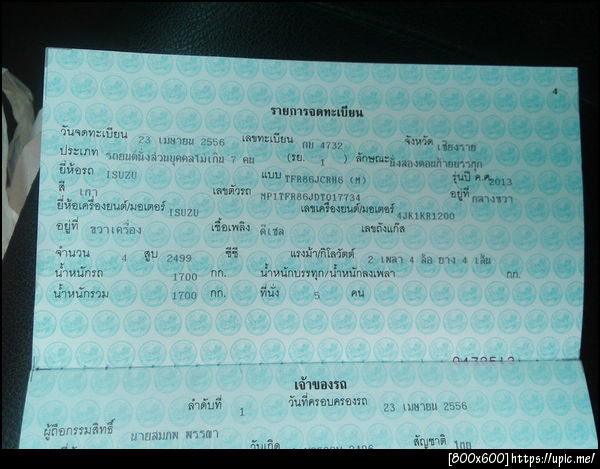 4
รายการจดทะเบียน
วันจดทะเบียน 23 เมษายน 2556 เลขทะเบียน กบ 4732 จังหวัด เชียงราย
ประเภท รถยนต์นั่งส่วนบุคคลไม่เกิน 7 คน (รย. 1 ) ลักษณะ นั่งสองตอนท้ายบรรทุก
ยี่ห้อรถ ISUZU แบบ TFR86JCRH6 (M) รุ่นปี ค.ศ. 2013
สี เทา เลขตัวรถ MP1TFR86JDT017734 อยู่ที่ กลางขวา
ยี่ห้อเครื่องยนต์/มอเตอร์ ISUZU เลขเครื่องยนต์/มอเตอร์ 4JK1KR1200
อยู่ที่ ขวาเครื่อง เชื้อเพลิง ดีเซล เลขถังแก๊ส
จำนวน 4 สูบ 2499 ซีซี แรงม้า/กิโลวัตต์ 2 เพลา 4 ล้อ ยาง 4 เส้น
น้ำหนักรถ 1700 กก. น้ำหนักบรรทุก/น้ำหนักลงเพลา กก.
น้ำหนักรวม 1700 กก. ที่นั่ง 5 คน
เจ้าของรถ
ลำดับที่ 1 วันที่ครอบครองรถ 23 เมษายน 2556
ผู้ถือกรรมสิทธิ์ นายสมภพ พรรณา
วันเกิด สัญชาติ ไทย
[800x600]https://upic.me/